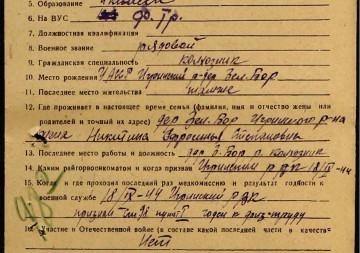 5. Образование
6. На ВУС физ. тр.
7. Должностная квалификация
8. Военное звание рядовой
9. Гражданская специальность колхозник
10. Место рождения УАССР Игринский р-он дер Зел-Бор
11. Последнее место жительства там же
12. Где проживает в настоящее время семья (фамилия, имя и отчество жены
или родителей и точный их адрес) дер Зел. Бор Игринского р-на
жена Никитина Степановна
13. Последнее место работы и должность дер З-Бор колхозник
14. Каким райгорвоенкоматом и когда призван Игринский РВК 18/IV-44
15. Когда и где проходил последний раз медкомиссию и результат годности к
военной службе 18/IV-44 Игринский РВК
признан годен к физ-труду
16. Участие в Отечественной войне (в составе какой последней части в качестве
Нет